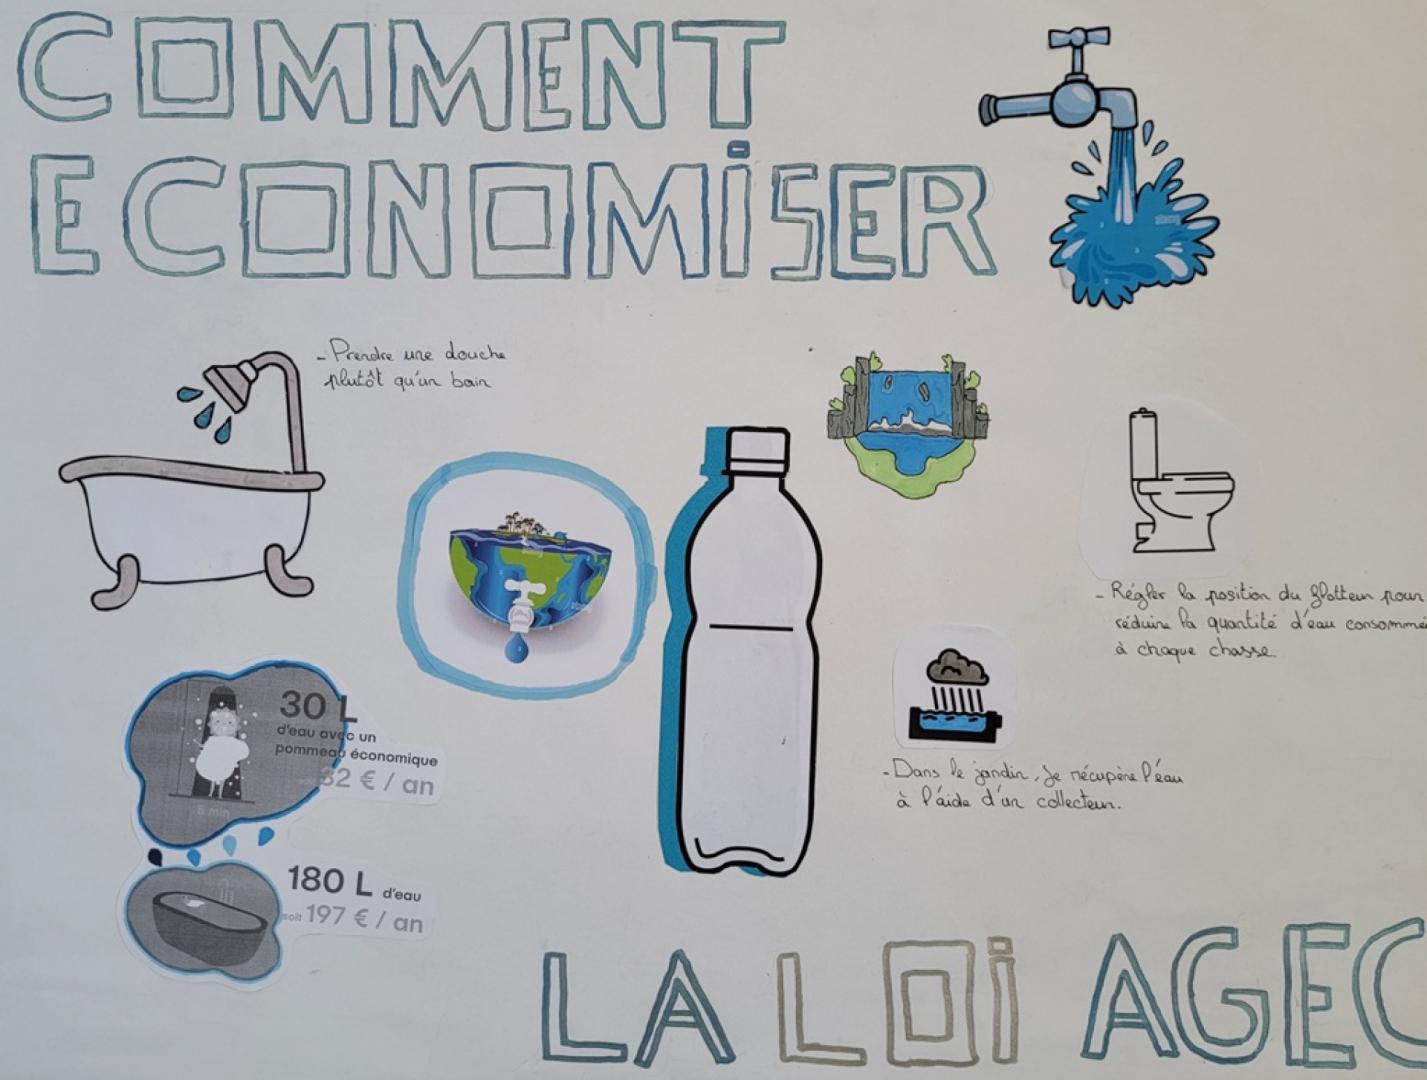 COMMENT
ECONOMISER
- Prendre une douche
plutôt qu'un bain
- Régler la position du flotteur pour
réduire la quantité d'eau consommé
à chaque chasse.
30 L
d'eau avec un
pommeau économique
32 € / an
8 min
- Dans le jardin, je récupère l'éau
à l'aide d'un collecteur.
180 L d'eau
soit 197 € / an
LA LOI AGEC